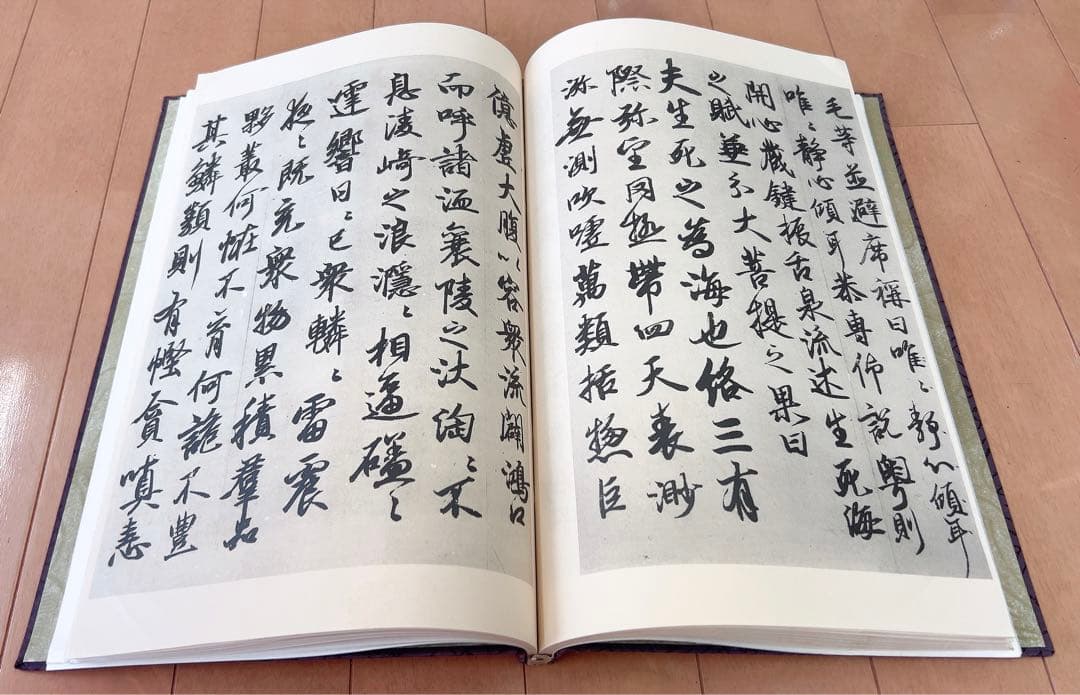 毛等並避席稱曰唯々靜心傾耳
唯々靜心傾耳恭專佇說粤則
開心藏鍵振舌泉流述生死海
之賦兼示大菩提之果曰
夫生死之為海也絡三有
際弥望罔極帶四天表渺
弥無測吹嘘萬類括惣巨
億虚大腹以容衆流闢鴻口
而呼諸洫襄陵之汏淘々不
息凌崎之浪濦々相逼礚々
霆響日々已衆轔々雷震
夜々既充衆物累積羣品
夥叢何恠不育何詭不豐
其鱗類則有慳貪嗔恚